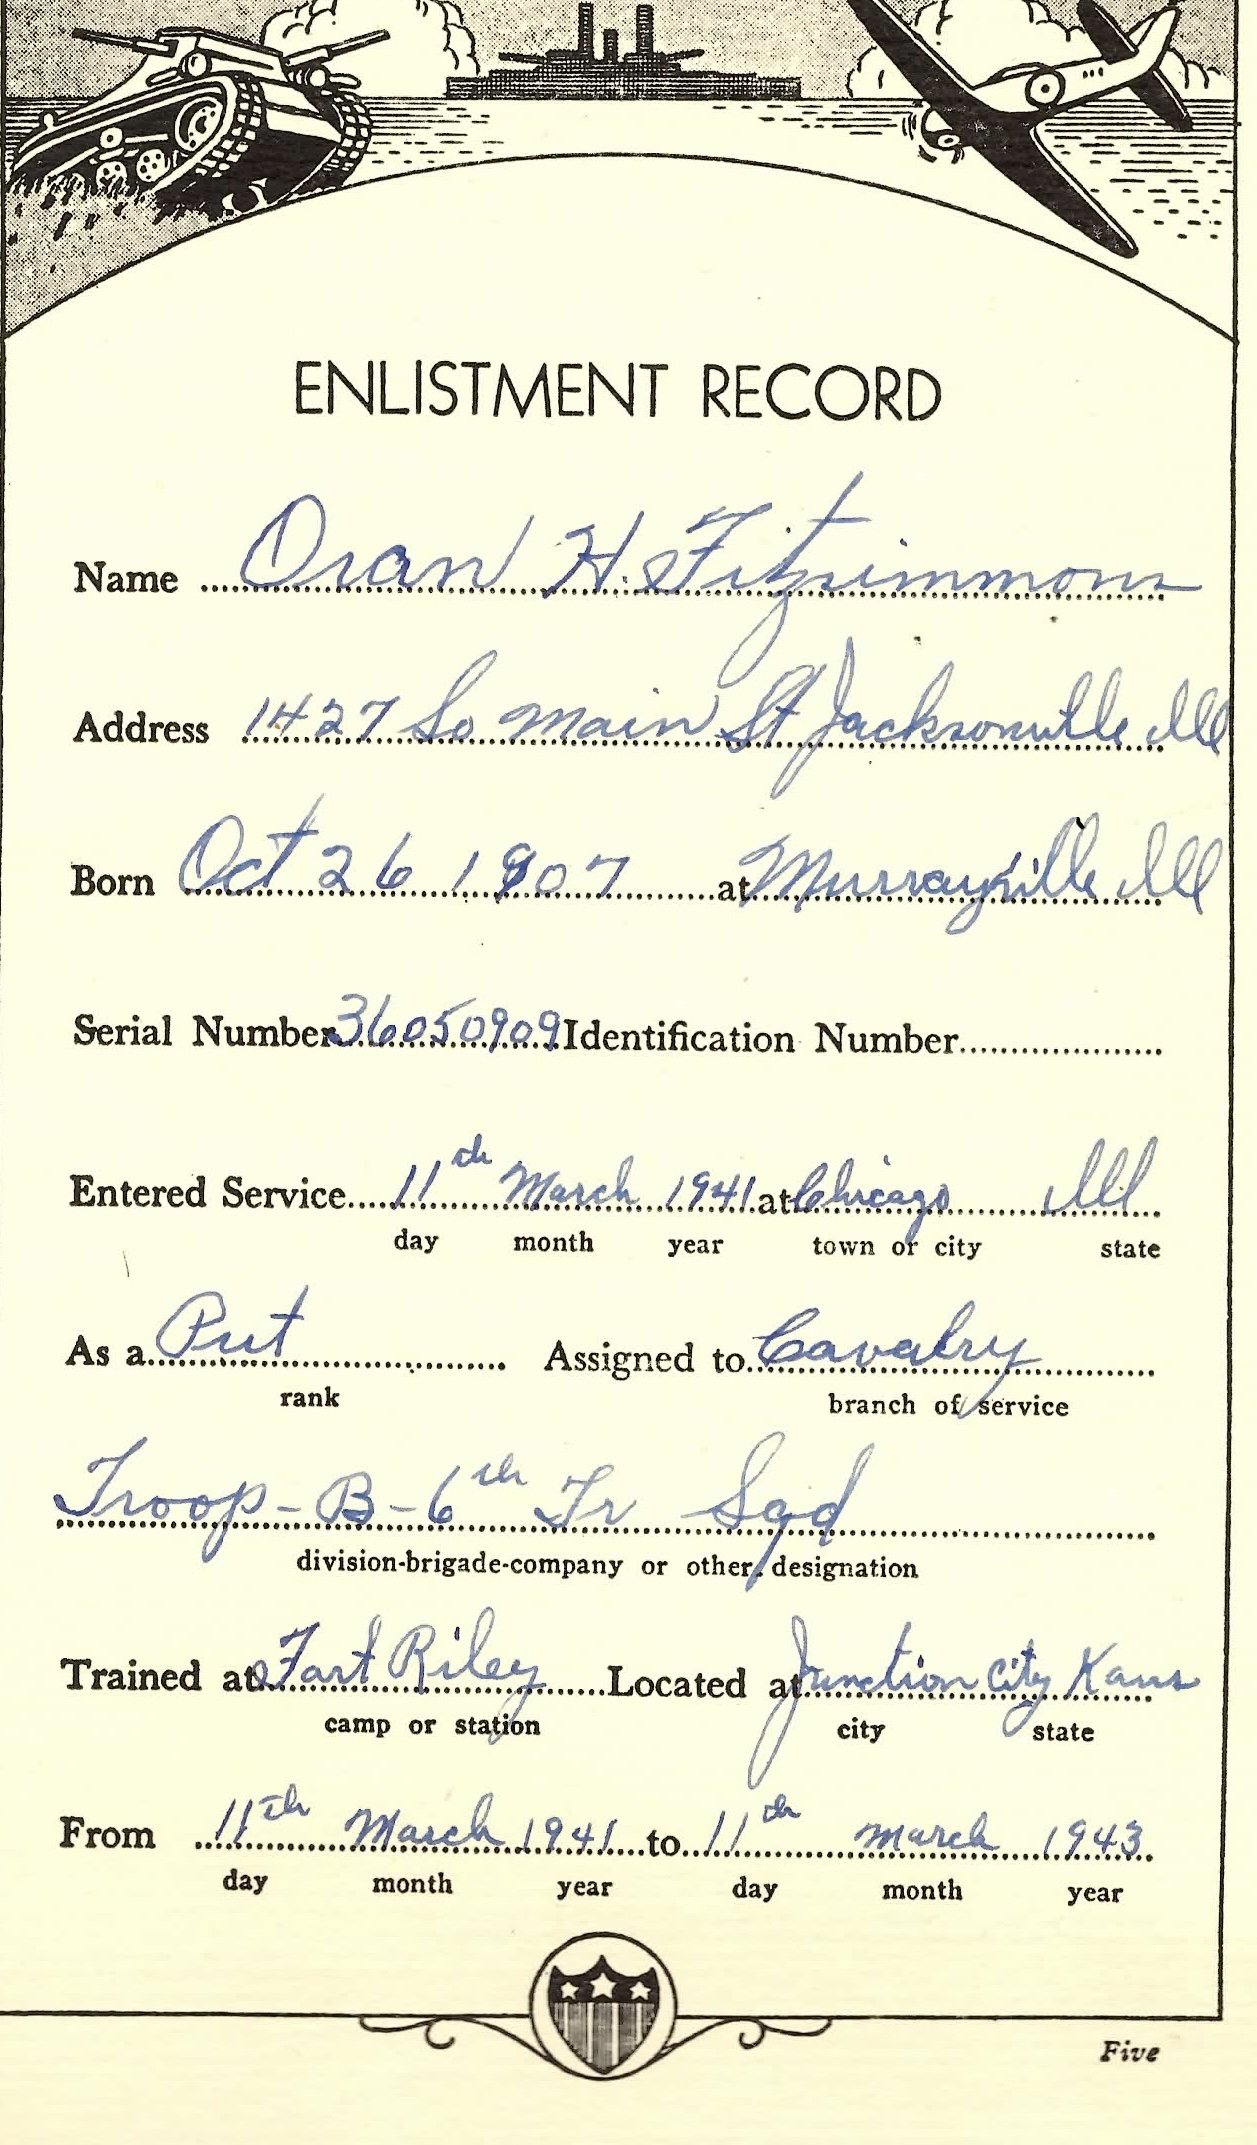 ENLISTMENT RECORD
Name Oran H. Fitzsimmons
Address 1427 So Main St Jacksonville Ill
Born Oct 26 1907 at Murrayville Ill
Serial Number 36050909 Identification Number
Entered Service 11th March 1941 at Chicago Ill
day month year town or city state
As a Pvt Assigned to Cavalry
rank branch of service
Troop-B-6th Tr Sqd
division-brigade-company or other designation
Trained at Fort Riley Located at Junction City Kans
camp or station city state
From 11th March 1941 to 11th March 1943
day month year day month year
Five